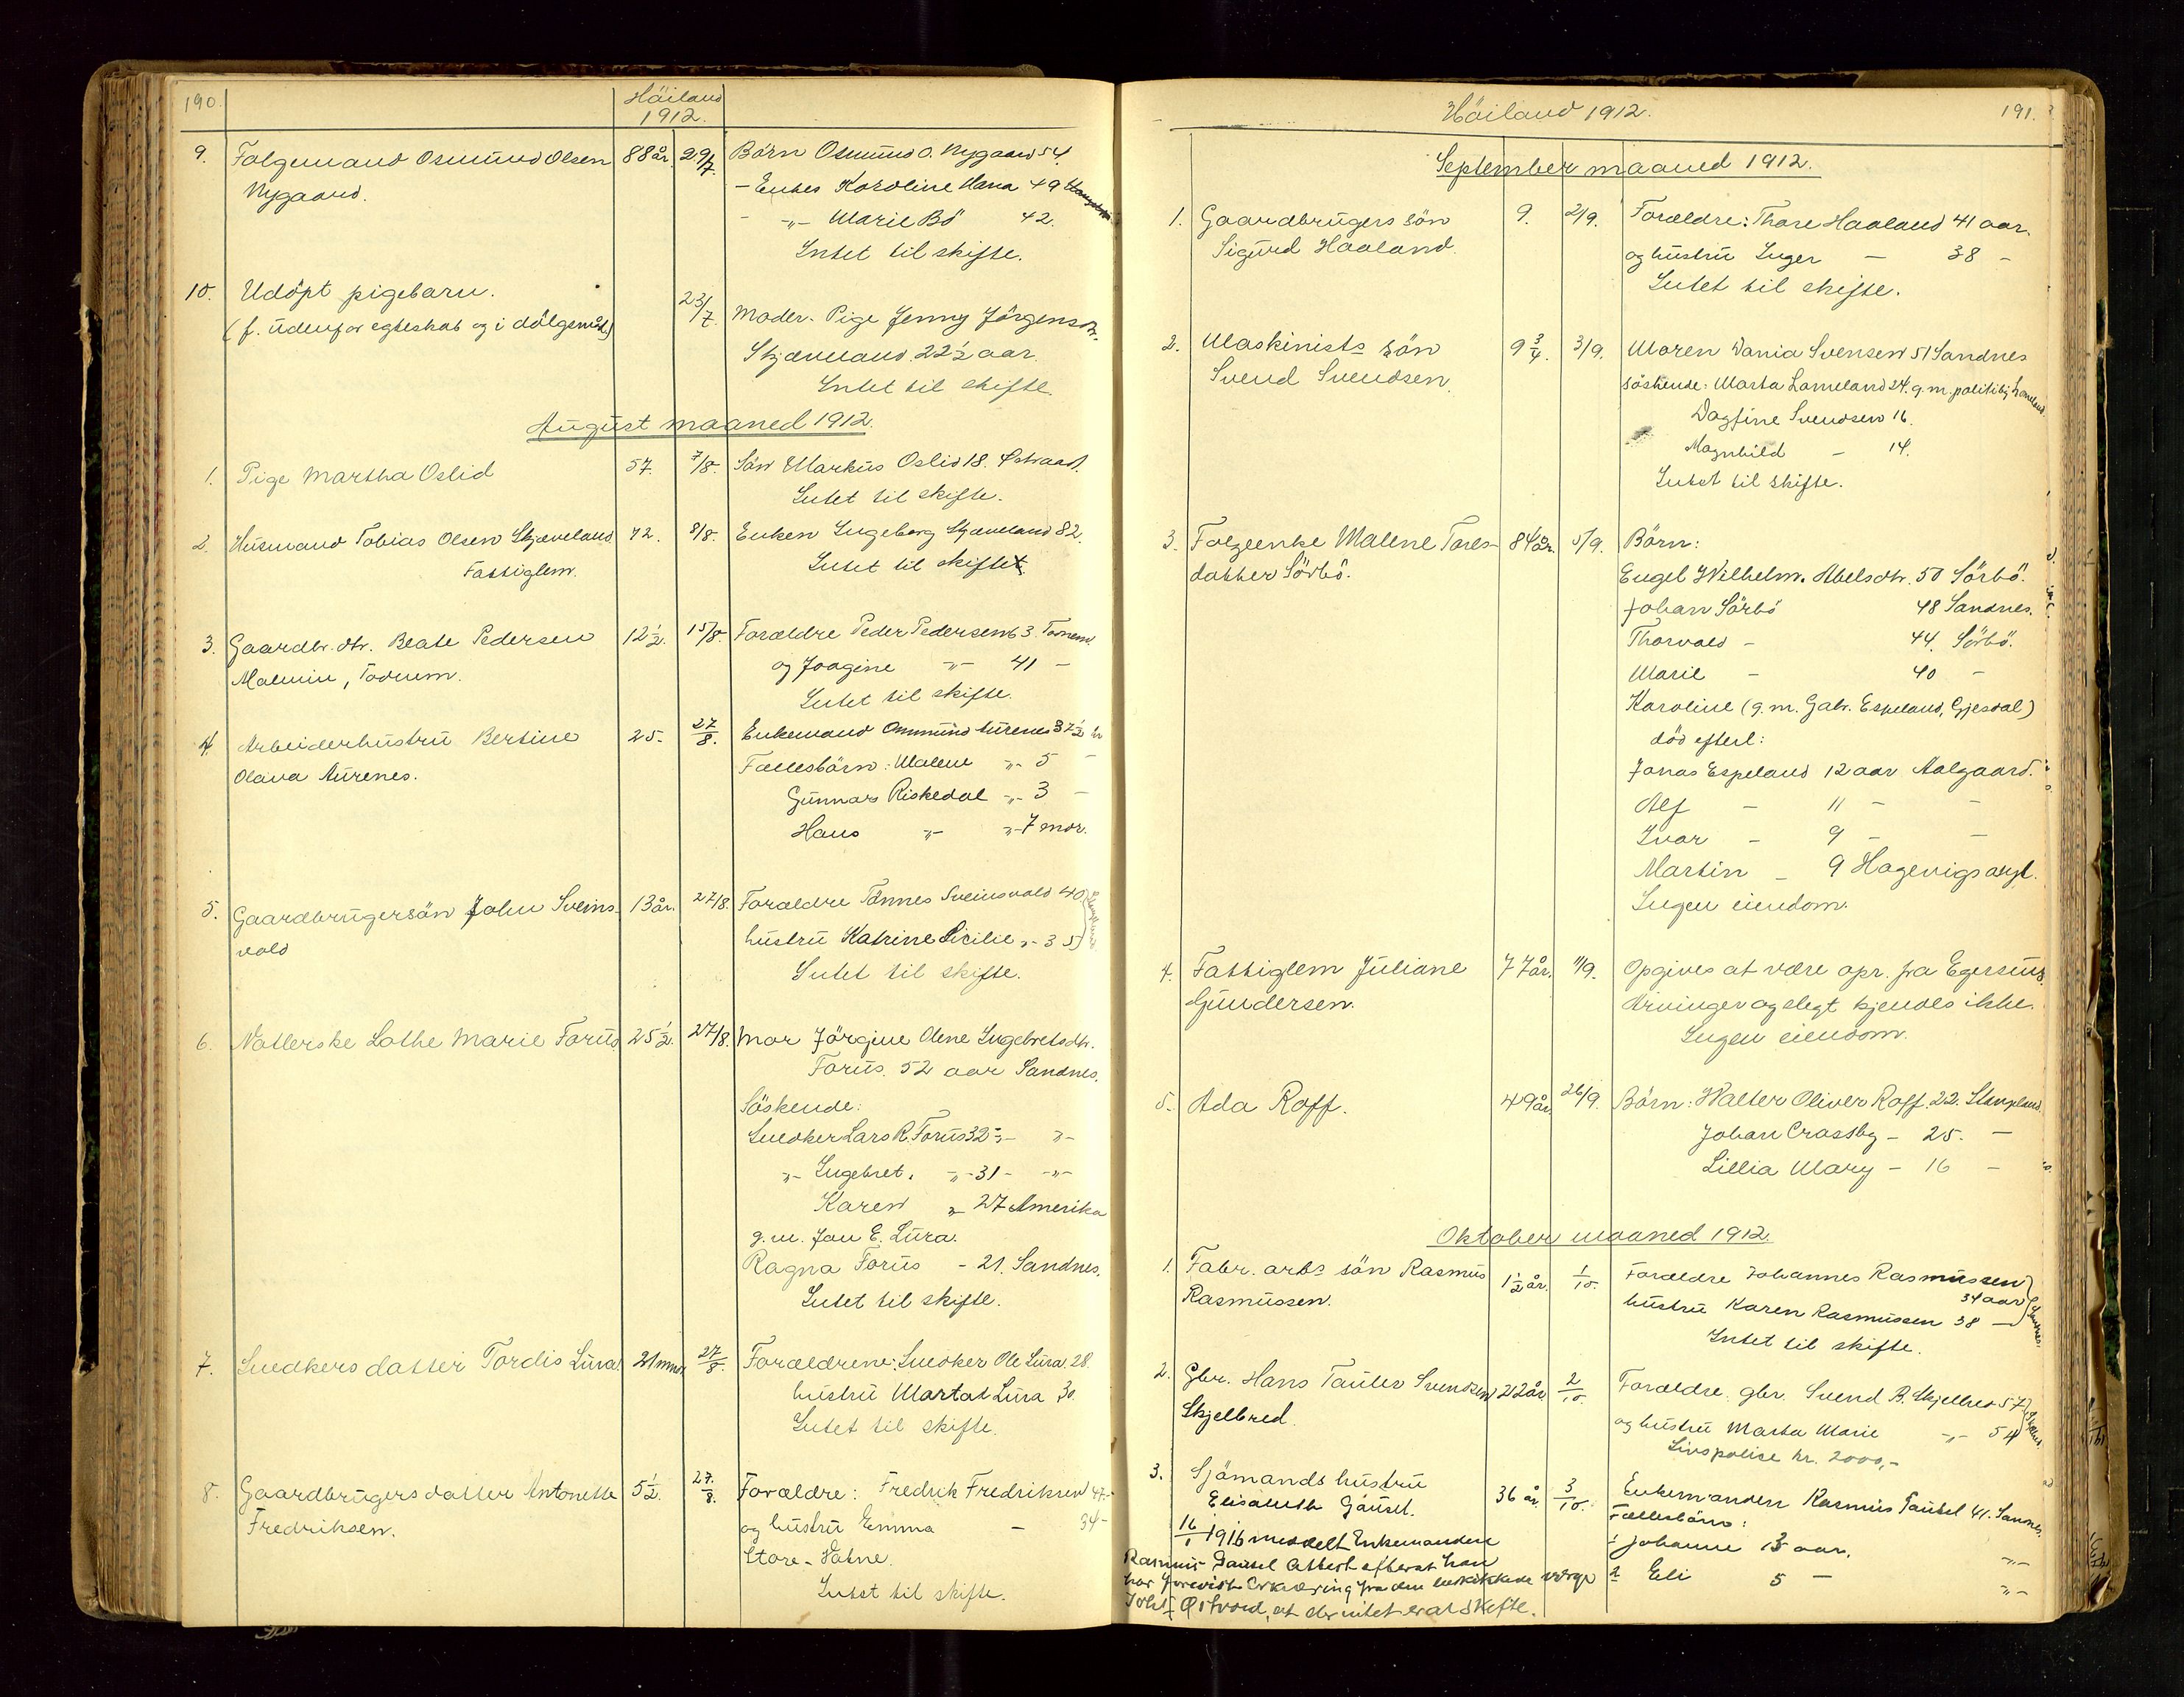 190.
Höiland
1912.
9. Folgemand Osmund Olsen 88 år. 29/7. Börn Osmund O. Nygaard 54.
Nygaard.
- Enkes Karoline Hana 49
- -"- Marie Bö 42.
Intet til skifte.
10. Udöpt pigebarn. 23/7. Moder. Pige Jenny Jörgensdtr.
(f. udenfor egteskab og i dölgsmål)
Skjæveland. 22 1/2 aar.
Intet til skifte.
August maaned 1912.
1. Pige Martha Oslid 57. 7/8. Sön Markus Oslid 18.
Intet til skifte.
2. Husmand Tobias Olsen Skjæveland 72. 8/8. Enken Ingeborg Skjæveland 82.
Fattiglem.
Intet til skifte.
3. Gaardbr. dtr. Beate Pedersen 12 1/2. 15/8. Forældre Peder Pedersen 63.
Malmin, Todnem.
og Joagine -"- 41 -
Intet til skifte.
4. Arbeiderhustru Bertine 25. 27/8. Enkemand Ommund Aurenes 37 1/2
Olava Aurenes.
Fællesbörn: Malene -"- 5 -
Gunnar Riskedal -"- 3 -
Hans -"- -"- 7 mdr.
5. Gaardbrugersön John Sveins- 13 år. 27/8. Forældre Tönnes Sveinsvold 40
vold
hustru Katrine Cicilie -"- 35
Intet til skifte.
6. Lothe Marie Forus 25 1/2. 27/8. Mor Jörgine Olene Ingebretsdtr.
Forus. 52 aar Sandnes.
Söskende:
Snedker Lars R. Forus 32 -"- -"-
-"- Ingebret. -"- 31 - -"-
Karen -"- 27 Amerika
g.m. Jan E. Lura.
Ragna Forus - 21. Sandnes.
Intet til skifte.
7. Snedkers datter Tordis Lura. 21 mndr. 27/8. Forældrene: Snedker Ole Lura. 28.
hustru Marta Lura 30.
Intet til skifte.
8. Gaardbrugers datter Antonette 5 1/2. 27/8. Forældre: Fredrik Fredriksen 47.-
Fredriksen.
og hustru Emma - 34-
Store-Vatne.
Intet til skifte.
Höiland 1912.
191.
September maaned 1912.
1. Gaardbrugers sön 9. 2/9. Forældre: Thore Haaland 41 aar.
Sigurd Haaland
og hustru Inger - 38 -
Intet til skifte.
2. Maskinists sön 9 3/4. 3/9. Moren Dania Svensen 51 Sandnes
Svend Svendsen
söskende: Marta Lomeland 24. g.m. politibtj. Lomeland.
Dagfine Svendsen 16.
Magnhild - 14.
Intet til skifte.
3. Folgeenke Malene Tores- 84 år. 5/9. Börn:
datter Sörbö.
Engel Wilhelm. Abelsdtr. 50 Sörbö.
Johan Sörbö 48 Sandnes.
Thorvald - 44. Sörbö.
Marie - 40 -
Karoline (g.m. Gabr. Espeland, Gjesdal)
död efterl:
Jonas Espeland 12 aar Aalgaard.
Alf - 11 - -
Ivar - 9 - -
Martin - 9 Hagevigs asyl.
Ingen eiendom.
4. Fattiglem Juliane 77 år. 11/9. Opgives at være opr. fra Egersund.
Gundersen.
Arvinger og slegt kjendes ikke.
Ingen eiendom.
5. Ada Roff. 49 år 26/9. Börn: Walter Oliver Roff. 22. Stangeland.
Johan Crassby - 25. -
Lillia Mary - 16 -
Oktober maaned 1912.
1. Fabr. arbs sön Rasmus 1 1/2 år. 1/10. Forældre Johannes Rasmussen
Rasmussen.
34 aar
hustru Karen Rasmussen 38 - Sandnes.
Intet til skifte.
2. Gbr. Hans Tauler Svendsen 22 år. 2/10. Forældre. gbr. Svend B. Skjelbred 57
Skjelbred.
og hustru Marta Marie -"- 54
Livspolise kr. 2000,-
3. Sjömands hustru 36 år. 3/10. Enkemanden Rasmus Gausel 41. Sandnes.
Elisabeth Gausel.
Fællesbörn:
16/1 1916 meddelt Enkemanden
1 Johanne 13 aar. -"-
Rasmus Gausel Attest efterat han
har forevist Erklæring fra den beskikkede værge 2 Eli 5 - -"-
Östvold, at der intet er at skifte.